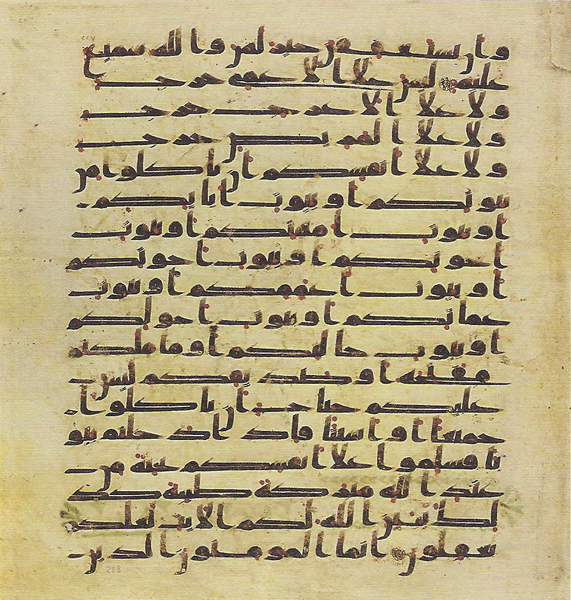 وان يستعففن خير لهن والله سميع
عليم ليس على الاعمى حرج
ولا على الاعرج حرج
ولا على المريض حرج
ولا على انفسكم ان تاكلوا من
بيوتكم او بيوت ابايكم
او بيوت امهتكم او بيوت
اخونكم او بيوت اخوتكم
او بيوت اعممكم او بيوت
عمتكم او بيوت اخولكم
او بيوت خلتكم او ما ملكتم
مفتحه او صديقكم ليس
عليكم جناح ان تاكلوا
جميعا او اشتاتا فاذا دخلتم بيو
تا فسلموا على انفسكم تحية من
عند الله مبركة طيبة كذ
لك يبين الله لكم الايت لعلكم
تعقلون انما المومنون الذين